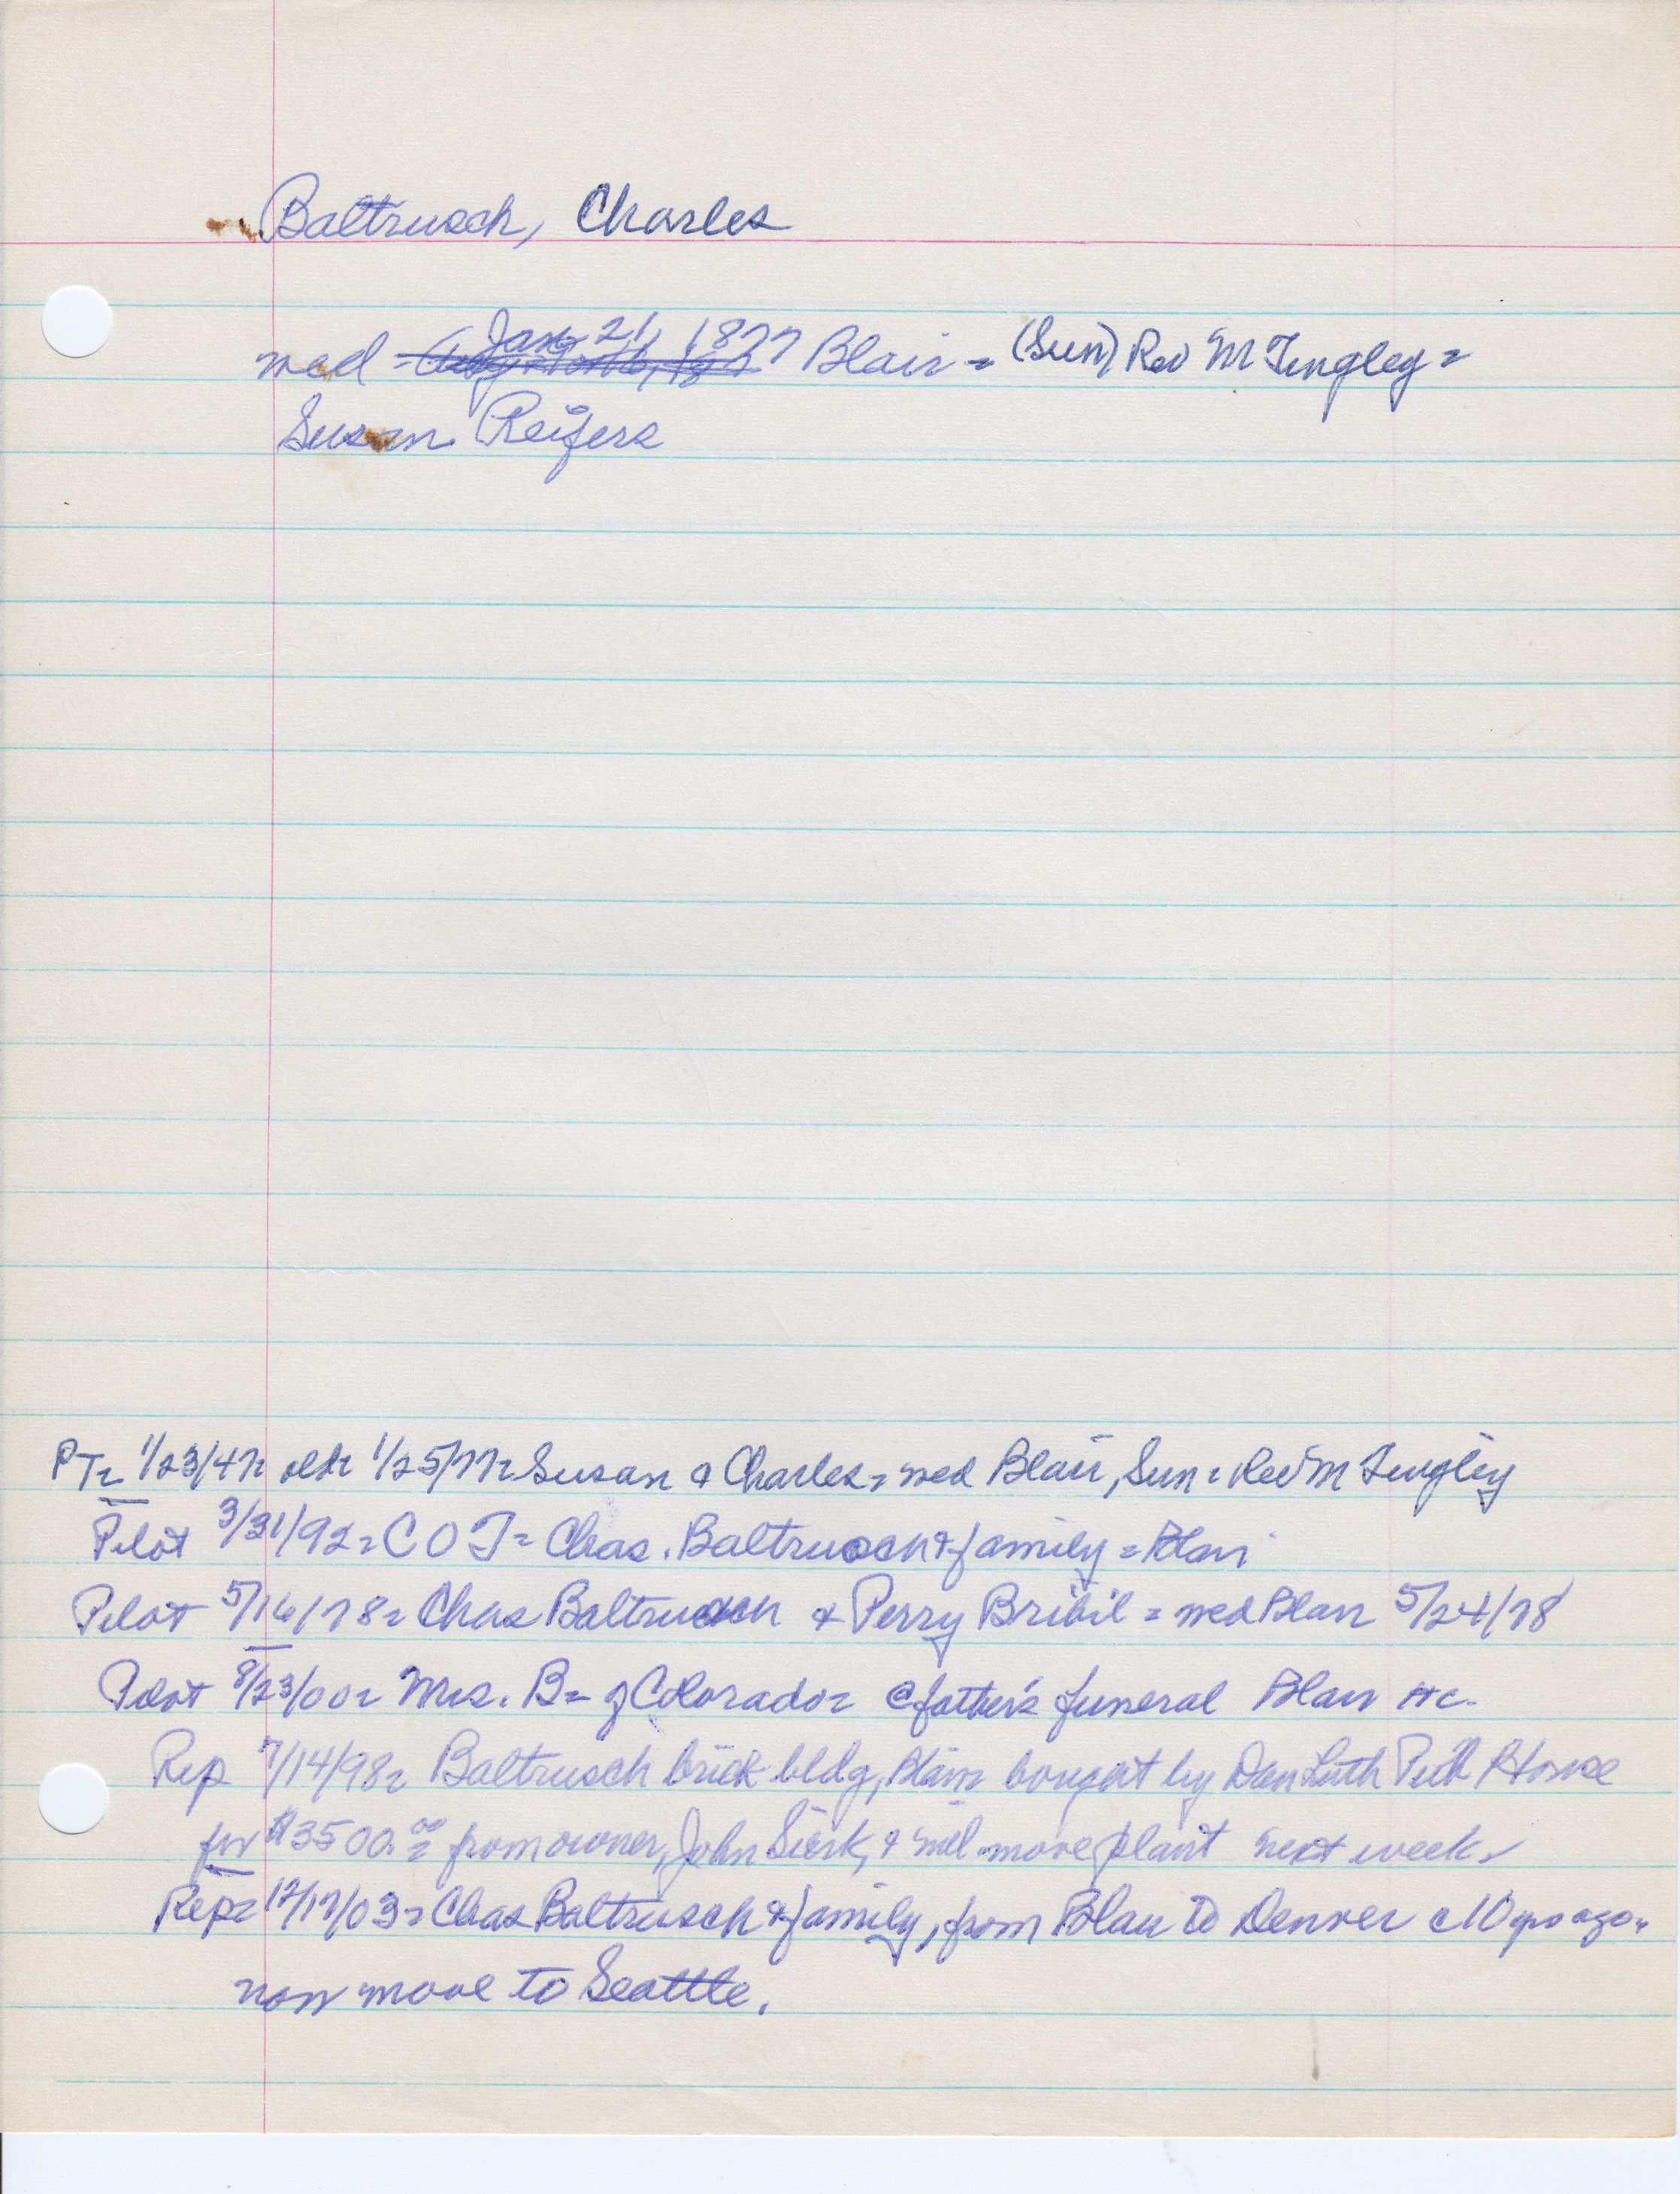 Baltrusch, Charles
med - Jan 21, 1877 Blair = (Sun) Rev M Tingley =
Susan Reifers
PT= 1/23/47= 1/25/77= Susan & Charles = med Blair, Sun = Rev M Tingley
Pilot 3/31/92= C O T= Chas. Baltrusch & family = Blair
Pilot 5/16/78= Chas Baltrusch & Perry Bribil = med Blair 5/24/78
Pilot 8/23/00= Mrs. B= of Colorado= @ father's funeral Blair etc.
Rep 7/14/98= Baltrusch brick bldg, Blair bought by Dan Luth Pub House
for $3500.00= from owner, John Sierk, & will move plant next week.
Rep= 12/17/03= Chas Baltrusch & family, from Blair to Denver c10 yrs ago.
now move to Seattle.